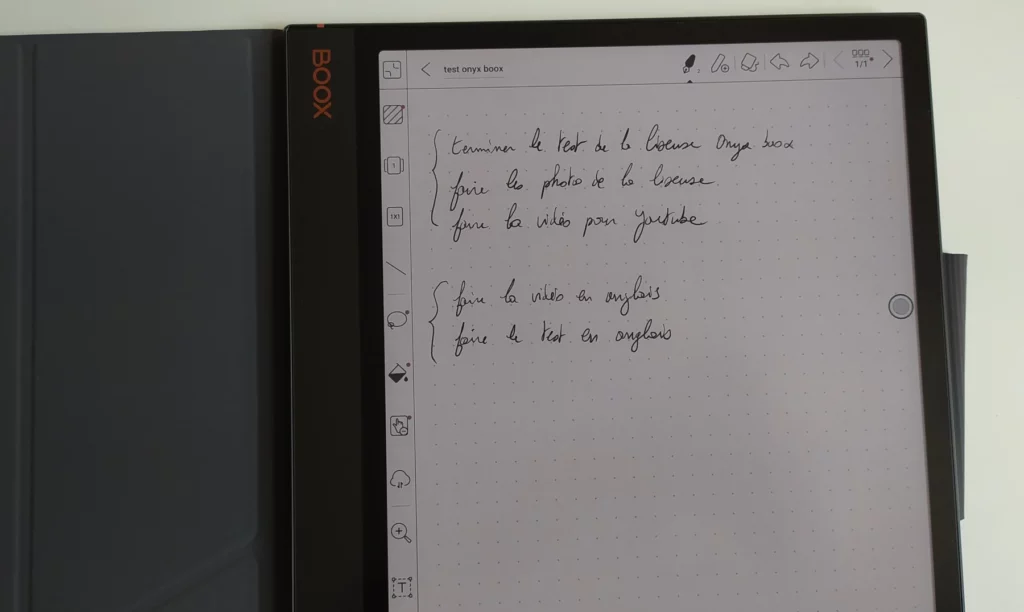 BOOX
test onyx boox
1/1
1
1X1
terminer le test de la liseuse Onyx boox
faire les photos de la liseuse
faire la vidéo pour youtube
faire la vidéo en anglais
faire le test en anglais
T